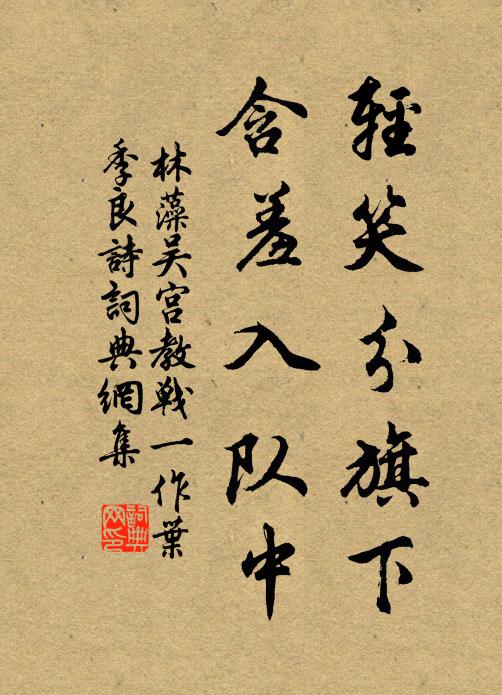 輕笑分旗下
含羞入队中
林藻吴宫教戰一作葉
季良詩詞典網集
詞典網印